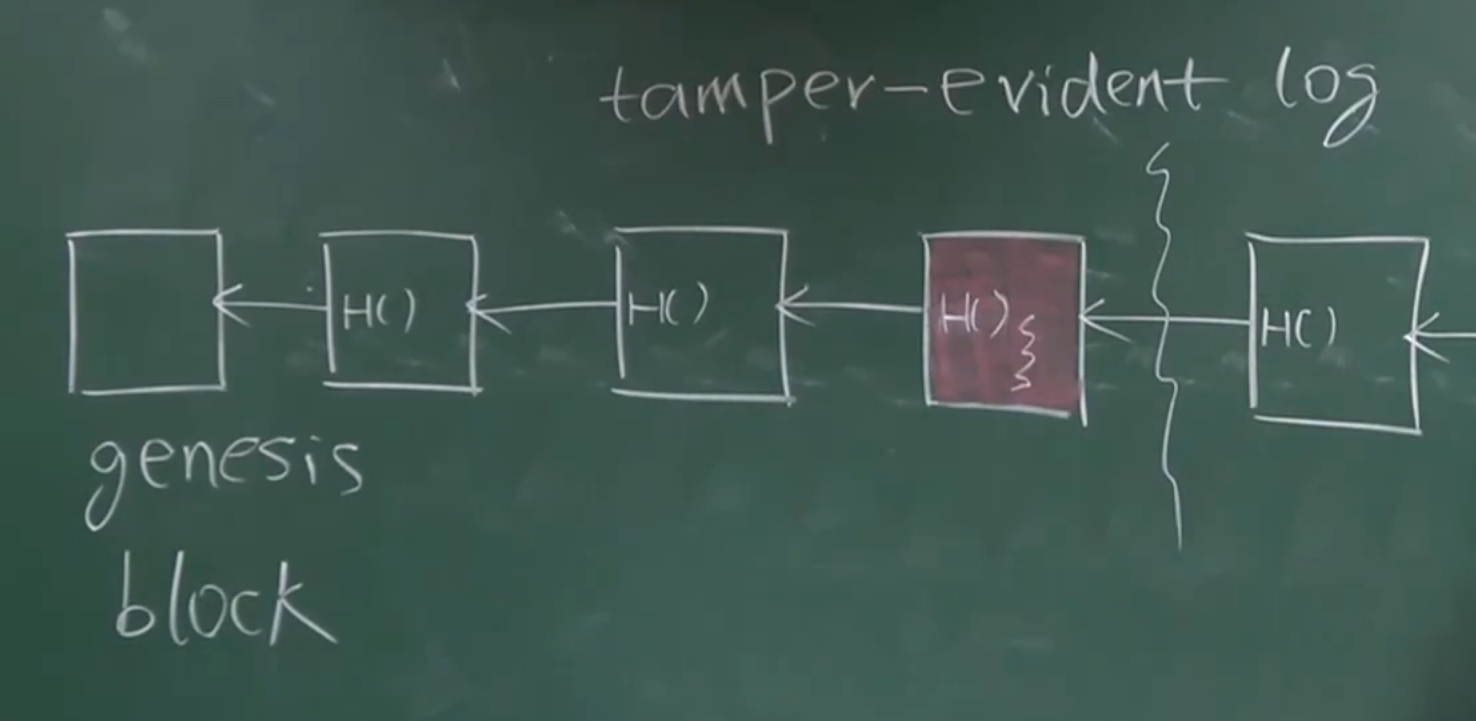 tamper-evident log
H() H() H() H()
genesis
block